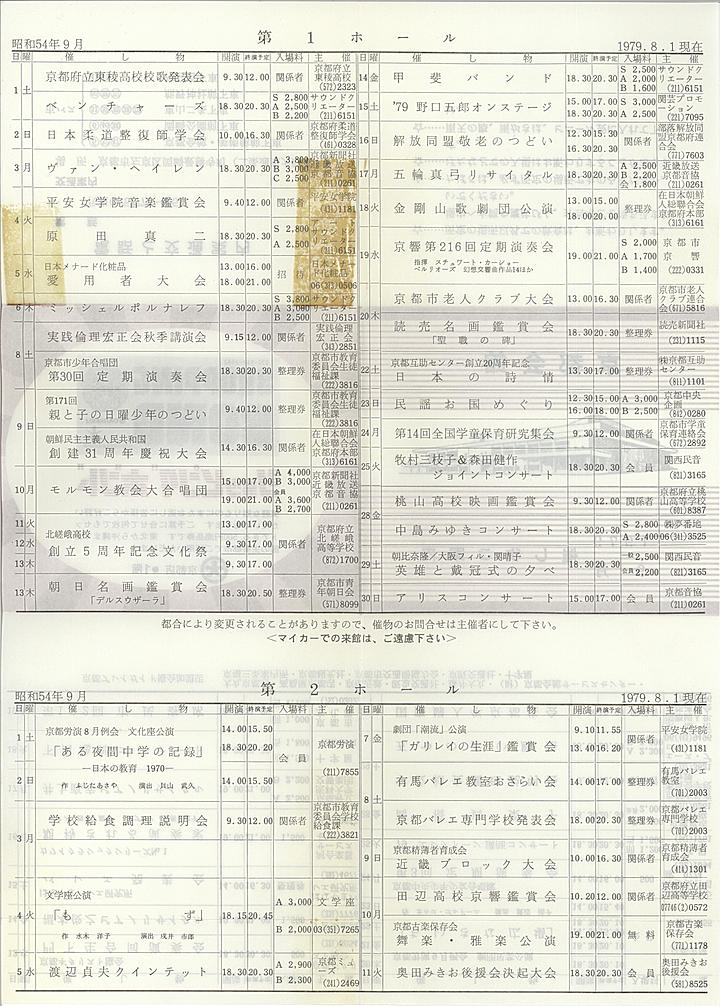 第1ホール
昭和54年9月
1979.8.1現在
日 曜 催し物 開演 終演予定 入場料 主催
1 土 京都府立東稜高校校歌発表会 9.30 12.00 関係者 京都府立東稜高校 (572)2323
ベンチャーズ 18.30 20.30 S 2,800 A 2,500 B 2,200 サウンドクリエーター (211)6151
2 日 日本柔道整復師学会 10.00 16.30 関係者 京都府柔道整復師学会 (461)0328
3 月 ヴァン・ヘイレン 18.30 20.30 A 3,800 B 3,000 C 2,500 京都新聞社 近畿放送 京都音協 (211)0261
4 火 平安女学院音楽鑑賞会 9.40 12.00 関係者 平安女学院 (431)1181
原田真二 18.30 20.30 S 2,800 A 2,500 サウンドクリエーター (211)6151
5 水 日本メナード化粧品
愛用者大会 13.00 16.00 18.00 21.00 招待 日本メナード化粧品 06(313)0506
6 木 ミッシェルポルナレフ 18.30 20.30 S 3,800 A 3,000 B 2,500 サウンドクリエーター (211)6151
8 土 実践倫理宏正会秋季講演会 9.15 12.00 関係者 実践倫理宏正会 (343)2851
京都市少年合唱団
第30回定期演奏会 18.30 20.30 整理券 京都市教育委員会生徒福祉課 (222)3816
9 日 第171回
親と子の日曜少年のつどい 9.40 12.00 整理券 京都市教育委員会生徒福祉課 (222)3816
朝鮮民主主義人民共和国
創建31周年慶祝大会 14.30 16.30 関係者 在日本朝鮮人総聯合会京都府本部 (313)6161
10 月 モルモン教会大合唱団 15.00 17.00 19.00 21.00 A 4,000 B 3,000 会員 A 3,600 B 2,700 京都新聞社 近畿放送 京都音協 (211)0261
11 火 13.00 17.00
12 水 北嵯峨高校
創立5周年記念文化祭 9.30 17.00 関係者 京都府立北嵯峨高等学校 (872)1700
13 木 9.30 17.00
13 木 朝日名画鑑賞会
「デルスウザーラ」 18.30 20.50 整理券 京都市青年朝日会 (571)8099
14 金 甲斐バンド 18.30 20.30 S 2,500 A 2,000 B 1,600 サウンドクリエーター (211)6151
15 土 '79 野口五郎オンステージ 15.00 17.00 18.30 20.30 S 3,000 A 2,500 関芸プロモーション (221)7095
16 日 解放同盟敬老のつどい 12.30 15.30 16.30 20.30 関係者 部落解放同盟京都府連合会 (771)7603
17 月 五輪真弓リサイタル 18.30 20.30 A 2,500 B 2,200 会 1,800 近畿放送 京都音協 (211)0261
18 火 金剛山歌劇団公演 13.00 15.00 18.00 20.00 整理券 在日本朝鮮人総聯合会京都府本部 (313)6161
19 水 京響第216回定期演奏会
指揮 スチュワート・カーショー
ベルリオーズ 幻想交響曲作品14ほか 18.30 20.30 S 2,000 A 1,700 B 1,400 京都市京響 (222)0331
20 木 京都市老人クラブ大会 13.00 16.30 関係者 京都市老人クラブ連合会 (571)5816
読売名画鑑賞会
「聖職の碑」 18.30 20.30 整理券 読売新聞社 (231)1115
22 土 京都互助センター創立20周年記念
日本の詩情 13.30 17.00 整理券 ㈱京都互助センター (811)1101
23 日 民謡お国めぐり 12.30 15.00 16.00 18.00 A 3,000 B 2,500 京都中央企画 (842)0280
24 月 第14回全国学童保育研究集会 9.30 12.00 関係者 京都市学童保育連絡会 (672)2892
25 火 牧村三枝子&森田健作
ジョイントコンサート 18.30 20.30 会員 関西民音 (821)3165
28 金 桃山高校映画鑑賞会 9.30 12.00 関係者 京都府立桃山高校 (601)8387
中島みゆきコンサート 18.30 20.30 S 2,800 A 2,400 ㈱夢番地 06(341)3525
29 土 朝比奈隆/大阪フィル・関晴子
英雄と戴冠式の夕べ 18.30 20.30 一般 2,500 会員 2,200 関西民音 (821)3165
30 日 アリスコンサート 15.00 17.00 会員 京都音協 (211)0261
都合により変更されることがありますので、催物のお問合せは主催者にして下さい。
<マイカーでの来館は、ご遠慮下さい>
第2ホール
昭和54年9月
1979.8.1現在
日 曜 催し物 開演 終演予定 入場料 主催
1 土 京都労演8月例会 文化座公演 14.00 15.50
「ある夜間中学の記録」 18.30 20.20 会員 京都労演 (211)7855
―日本の教育 1970―
2 日 作 ふじたあさや 演出 貝山武久 14.00 15.50
3 月 学校給食調理説明会 9.30 12.00 関係者 京都市教育委員会学校給食課 (222)3821
4 火 文学座公演
「もず」 18.15 20.45 A 3,000 B 2,000 文学座 03(351)7265
作 水木洋子 演出 戌井市郎
5 水 渡辺貞夫クインテット 18.30 20.30 A 2,900 B 2,300 京都ミューズ (241)2469
7 金 劇団「潮流」公演
「ガリレイの生涯」鑑賞会 9.10 11.55 13.40 16.20 関係者 平安女学院 (431)1181
8 土 有馬バレエ教室おさらい会 14.00 17.00 整理券 有馬バレエ教室 (701)2003
京都バレエ専門学校発表会 18.00 20.30 整理券 京都バレエ専門学校 (701)2003
9 日 京都精薄者育成会
近畿ブロック大会 10.00 16.30 関係者 京都精薄者育成会 (441)1301
10 月 田辺高校京響鑑賞会 10.20 12.00 関係者 京都府立田辺高等学校 07746(2)0572
京都古楽保存会
舞楽・雅楽公演 19.00 21.00 無料 京都古楽保存会 (771)1178
11 火 奥田みきお後援会決起大会 18.30 20.30 会員 奥田みきお後援会 (581)8525